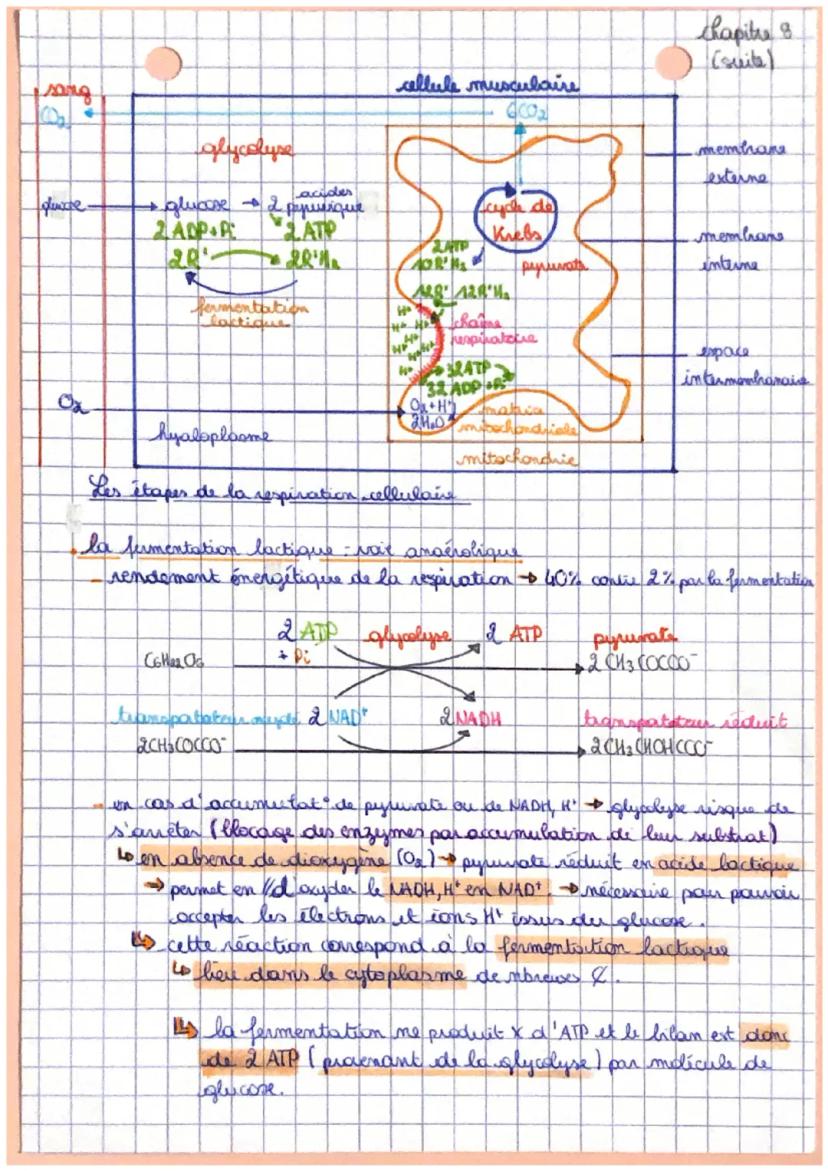 chapitre 8
(suite)
sang
cellule musculaire
CO₂
6CO₂
glycolyse
membrane
externe
glucose
glucose → 2 acides
pyruvique
cycle de
Krebs
2 ADP+Pi
2 ATP
2R'
2R'H₂
membrane
interne
2ATP
10R'H₂
pyruvate
12R' 12R'H₂
fermentation
lactique
H⁺
H⁺ H⁺
H⁺ H⁺
H⁺ H⁺
H⁺
chaîne
respiratoire
espace
intermembranaire
32ATP
32 ADP+Pi
O₂
O₂+H⁺
2H₂O
matrice
mitochondriale
hyaloplasme
mitochondrie
Les étapes de la respiration cellulaire
. la fermentation lactique = voie anaérobique
- rendement énergétique de la respiration → 40% contre 2% par la fermentation
2 ADP glycolyse 2 ATP pyruvate
+ Pi
C₆H₁₂O₆ 2 CH₃COCOO⁻
transpotateur oxydé 2 NAD⁺ 2 NADH transpotateur réduit
2CH₃COCOO⁻ 2CH₃CHOHCOO⁻
- en cas d'accumulat° de pyruvate ou de NADH, H⁺ → glycolyse risque de
s'arrêter (blocage des enzymes par accumulation de leur substrat)
↳ en absence de dioxygène (O₂) → pyruvate réduit en acide lactique
→ permet en // d'oxyder le NADH, H⁺ en NAD⁺. → nécessaire pour pouvoir
accepter les électrons et ions H⁺ issus du glucose.
↳ cette réaction correspond à la fermentation lactique
↳ lieu dans le cytoplasme de nbreuses ₵.
↳ la fermentation ne produit x d'ATP et le bilan est donc
de 2 ATP (provenant de la glycolyse) par molécule de
glucose.